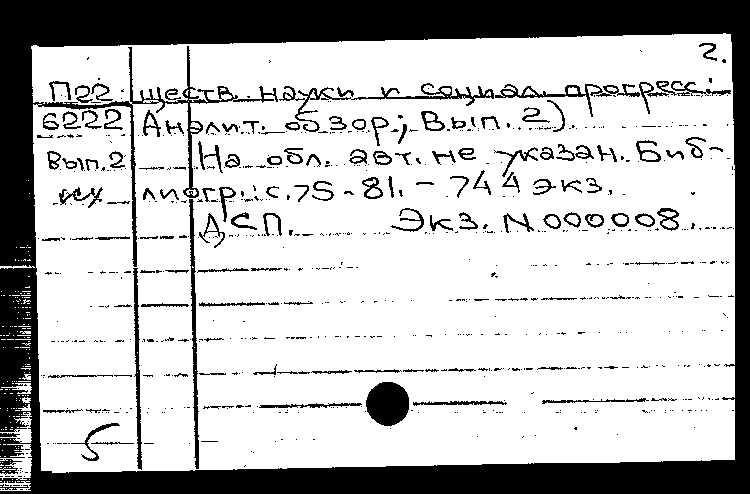 2.
П22 ществ. науки и социал. прогресс:
6222 Аналит. обзор; Вып. 2).
Вып.2 На обл. авт. не указан. Биб-
лиогр.: с. 75-81. - 744 экз.
ДСП. Экз. N 000008.
5